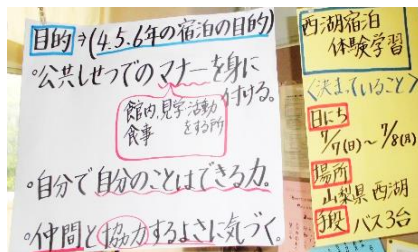 目的⇒(4.5.6年の宿泊の目的)
○公共しせつでのマナーを身に
付ける。
館内、見学、活動
食事 をする所
○自分で自分のことはできる力。
○仲間と協力するよさに気づく。
西湖宿泊
体験学習
〈決まっていること〉
日にち
7/7(日)～7/8(月)
場所
山梨県西湖
手段 バス3台